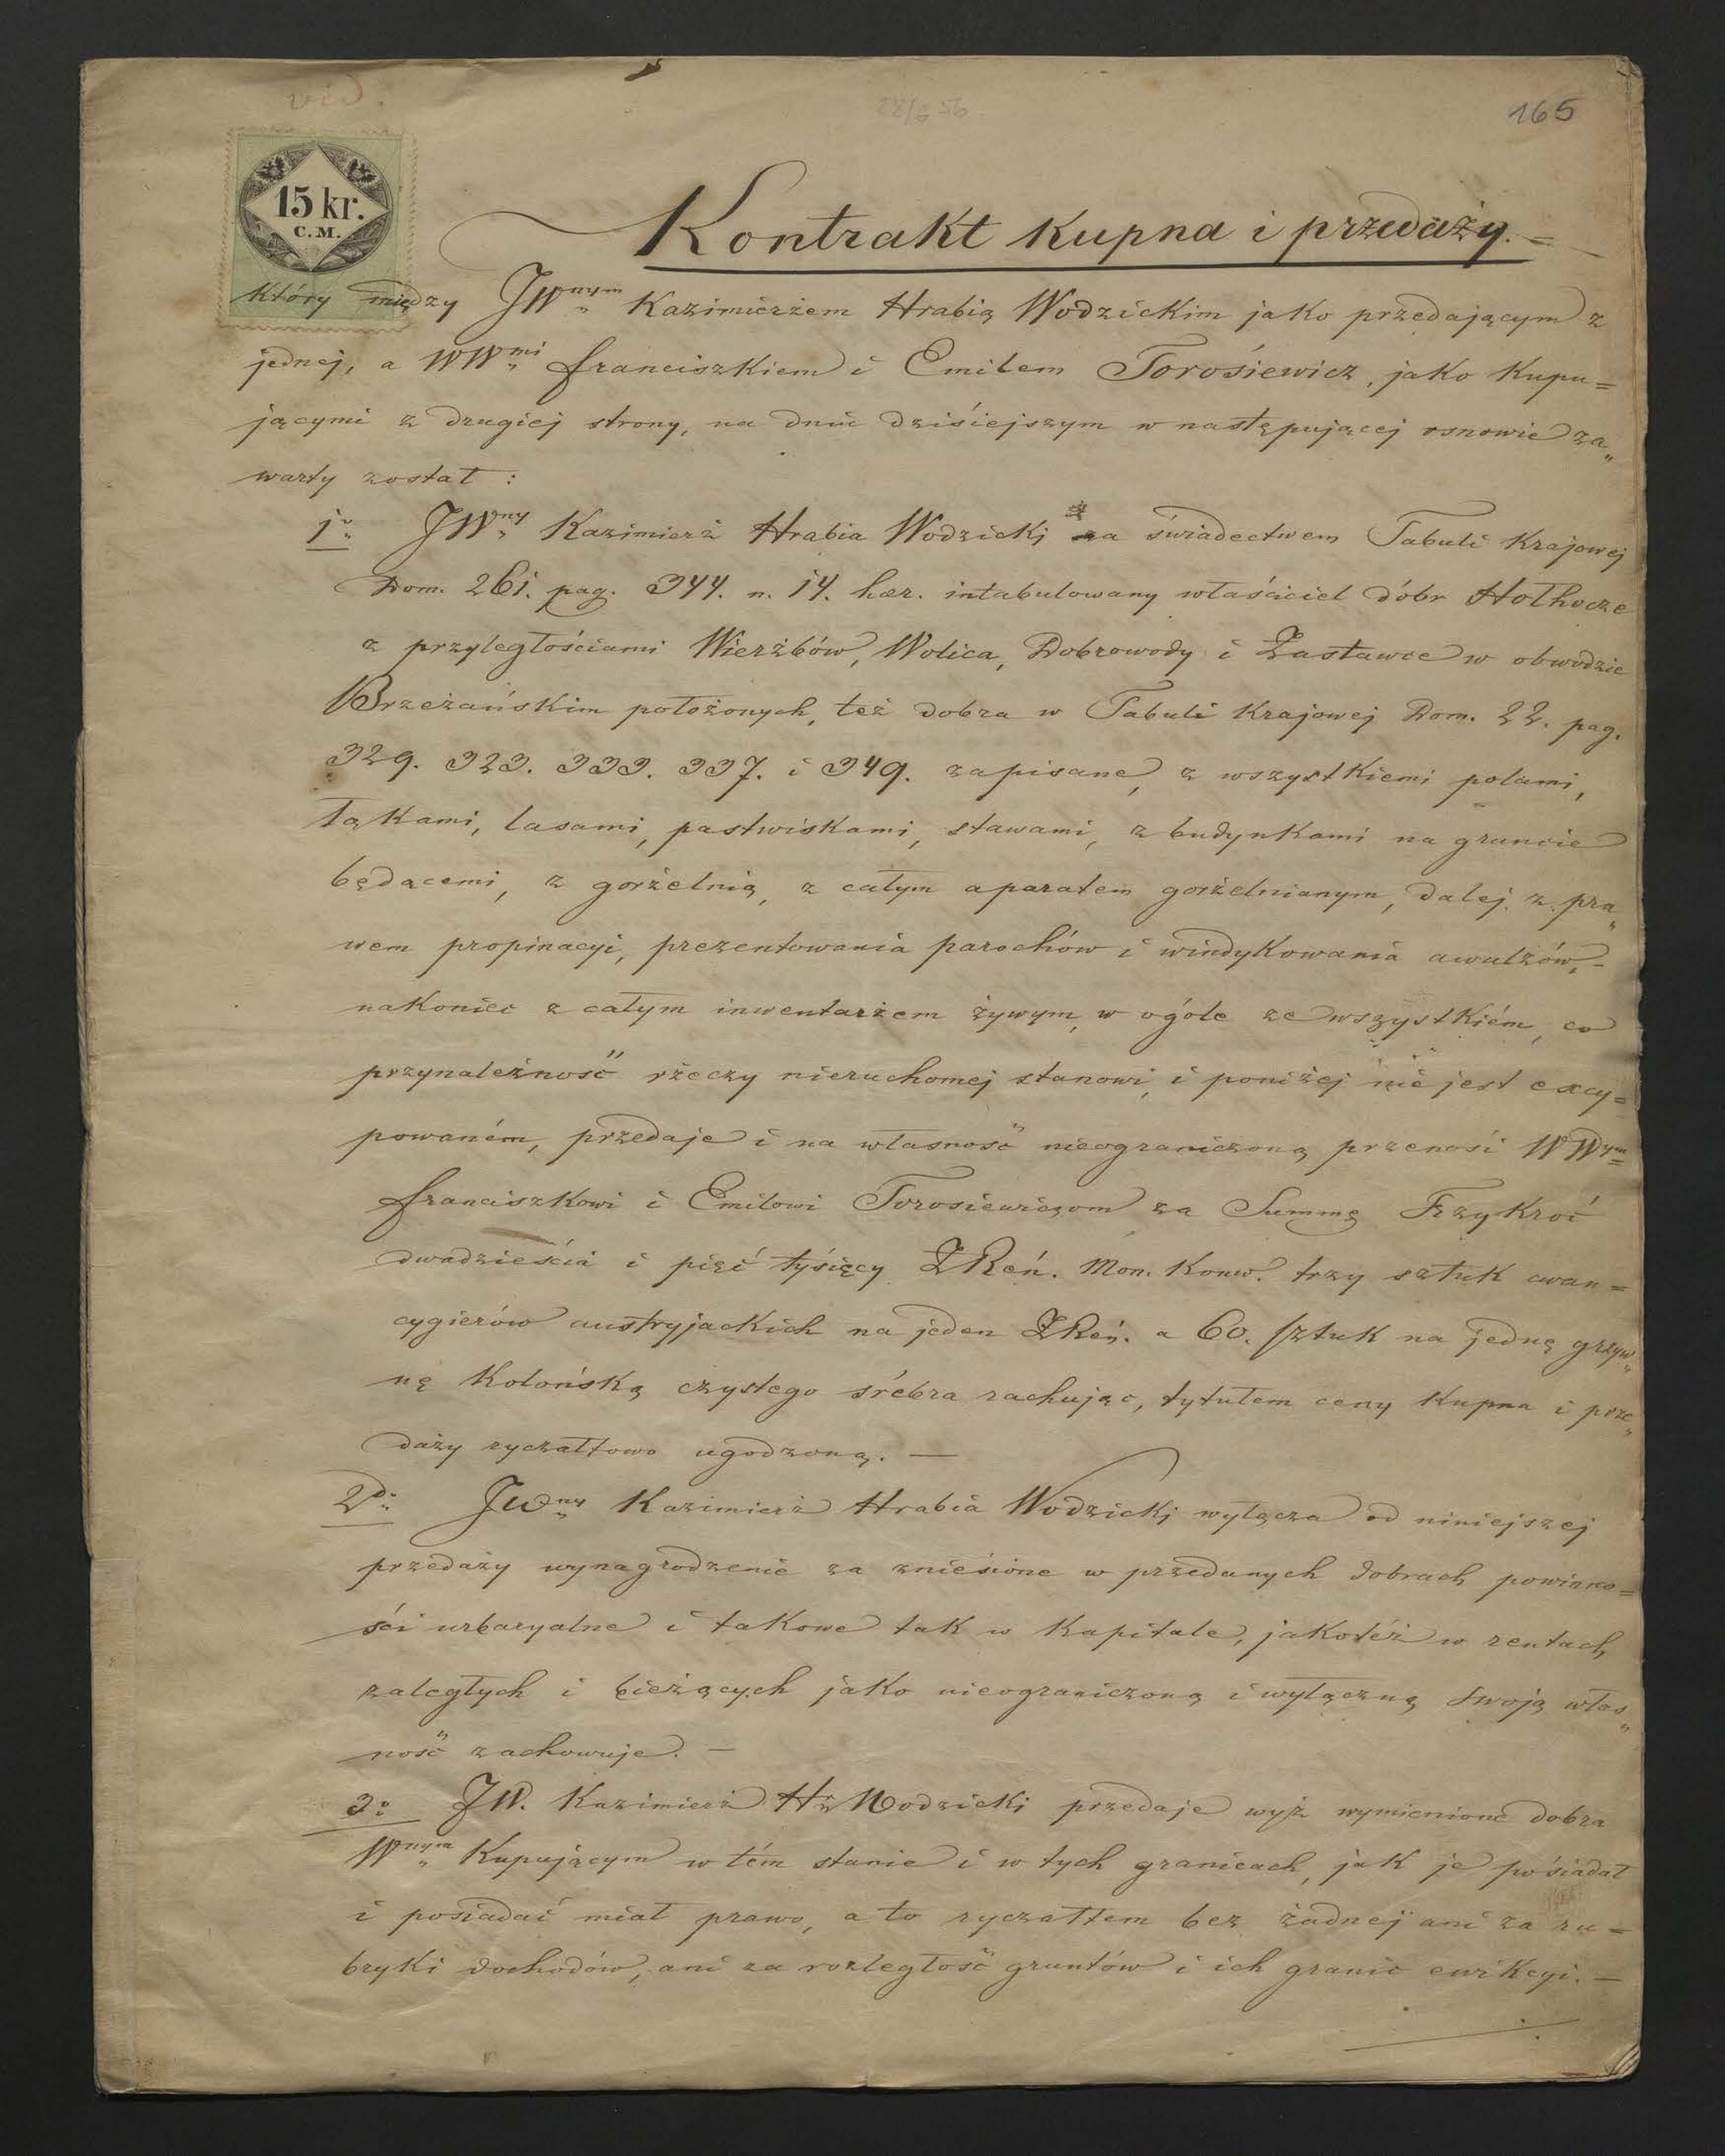 vid.
28/6 56
165
15 kr.
C.M.
Kontrakt kupna i przedaży. =
który między JWnym Kazimierzem Hrabią Wodzickim jako przedającym z
jednej, a WWmi Franciszkiem i Emilem Torosiewicz, jako kupu=
jącymi z drugiej strony, na dniu dzisiejszym w następującej osnowie za„
warty został :
1o JWny Kazimierz Hrabia Wodzicki za świadectwem Tabuli Krajowej
Dom. 261. pag. 344. n. 14. hær. intabulowany właściciel dóbr Hołhocze
z przyległościami Wierzbów, Wolica, Dobrowody i Zastawce w obwodzie
Brzeżańskim położonych, też dobra w Tabuli Krajowej Dom. 22. pag.
329. 323. 333. 337. i 349. zapisane, z wszystkiemi polami,
łąkami, lasami, pastwiskami, stawami, z budynkami na gruncie
będącemi, z gorzelnią, z całym aparatem gorzelnianym, dalej z pra„
wem propinacyi, prezentowania parochów i windykowania awulzów, –
nakoniec z całym inwentarzem żywym, w ogóle ze wszystkiém, co
przynależność rzeczy nieruchomej stanowi, i poniżej nie jest excy=
powaném, przedaje i na własność nieograniczoną przenosi WWym=
Franciszkowi i Emilowi Torosiewiczom za Summę Trzykroć
dwadzieścia i pięć tysięcy ZReń. Mon. Konw. trzy sztuk cwan=
cygierów austryjackich na jeden ZReń. a 60. sztuk na jednę grzyw„
nę Kolońską czystego śrebra rachując, tytułem ceny kupna i prze„
daży ryczałtowo ugodzoną. —
2do JWny Kazimierz Hrabia Wodzicki wyłącza od niniejszej
przedaży wynagrodzenie za zniesione w przedanych dobrach powinno=
ści urbaryalne i takowe tak w kapitale, jakoteż w rentach
zaległych i bieżących jako nieograniczoną i wyłączną swoją włas„
ność zachowuje. —
3o JW. Kazimierz Hr Wodzicki przedaje wyż wymienione dobra
Wnym Kupującym w tém stanie i w tych granicach, jak je posiadał
i posiadać miał prawo, a to ryczałtem bez żadnej ani za ru=
bryki dochodów, ani za rozległość gruntów i ich granic ewikcyi. —